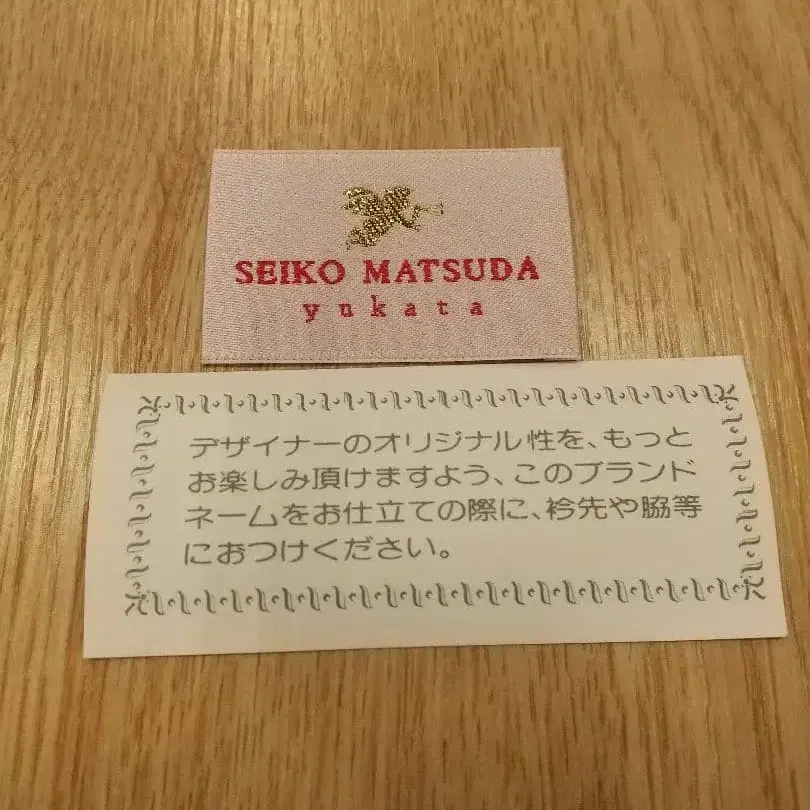 SEIKO MATSUDA
yukata
デザイナーのオリジナル性を、もっと
お楽しみ頂けますよう、このブランド
ネームをお仕立ての際に、衿先や脇等
におつけください。